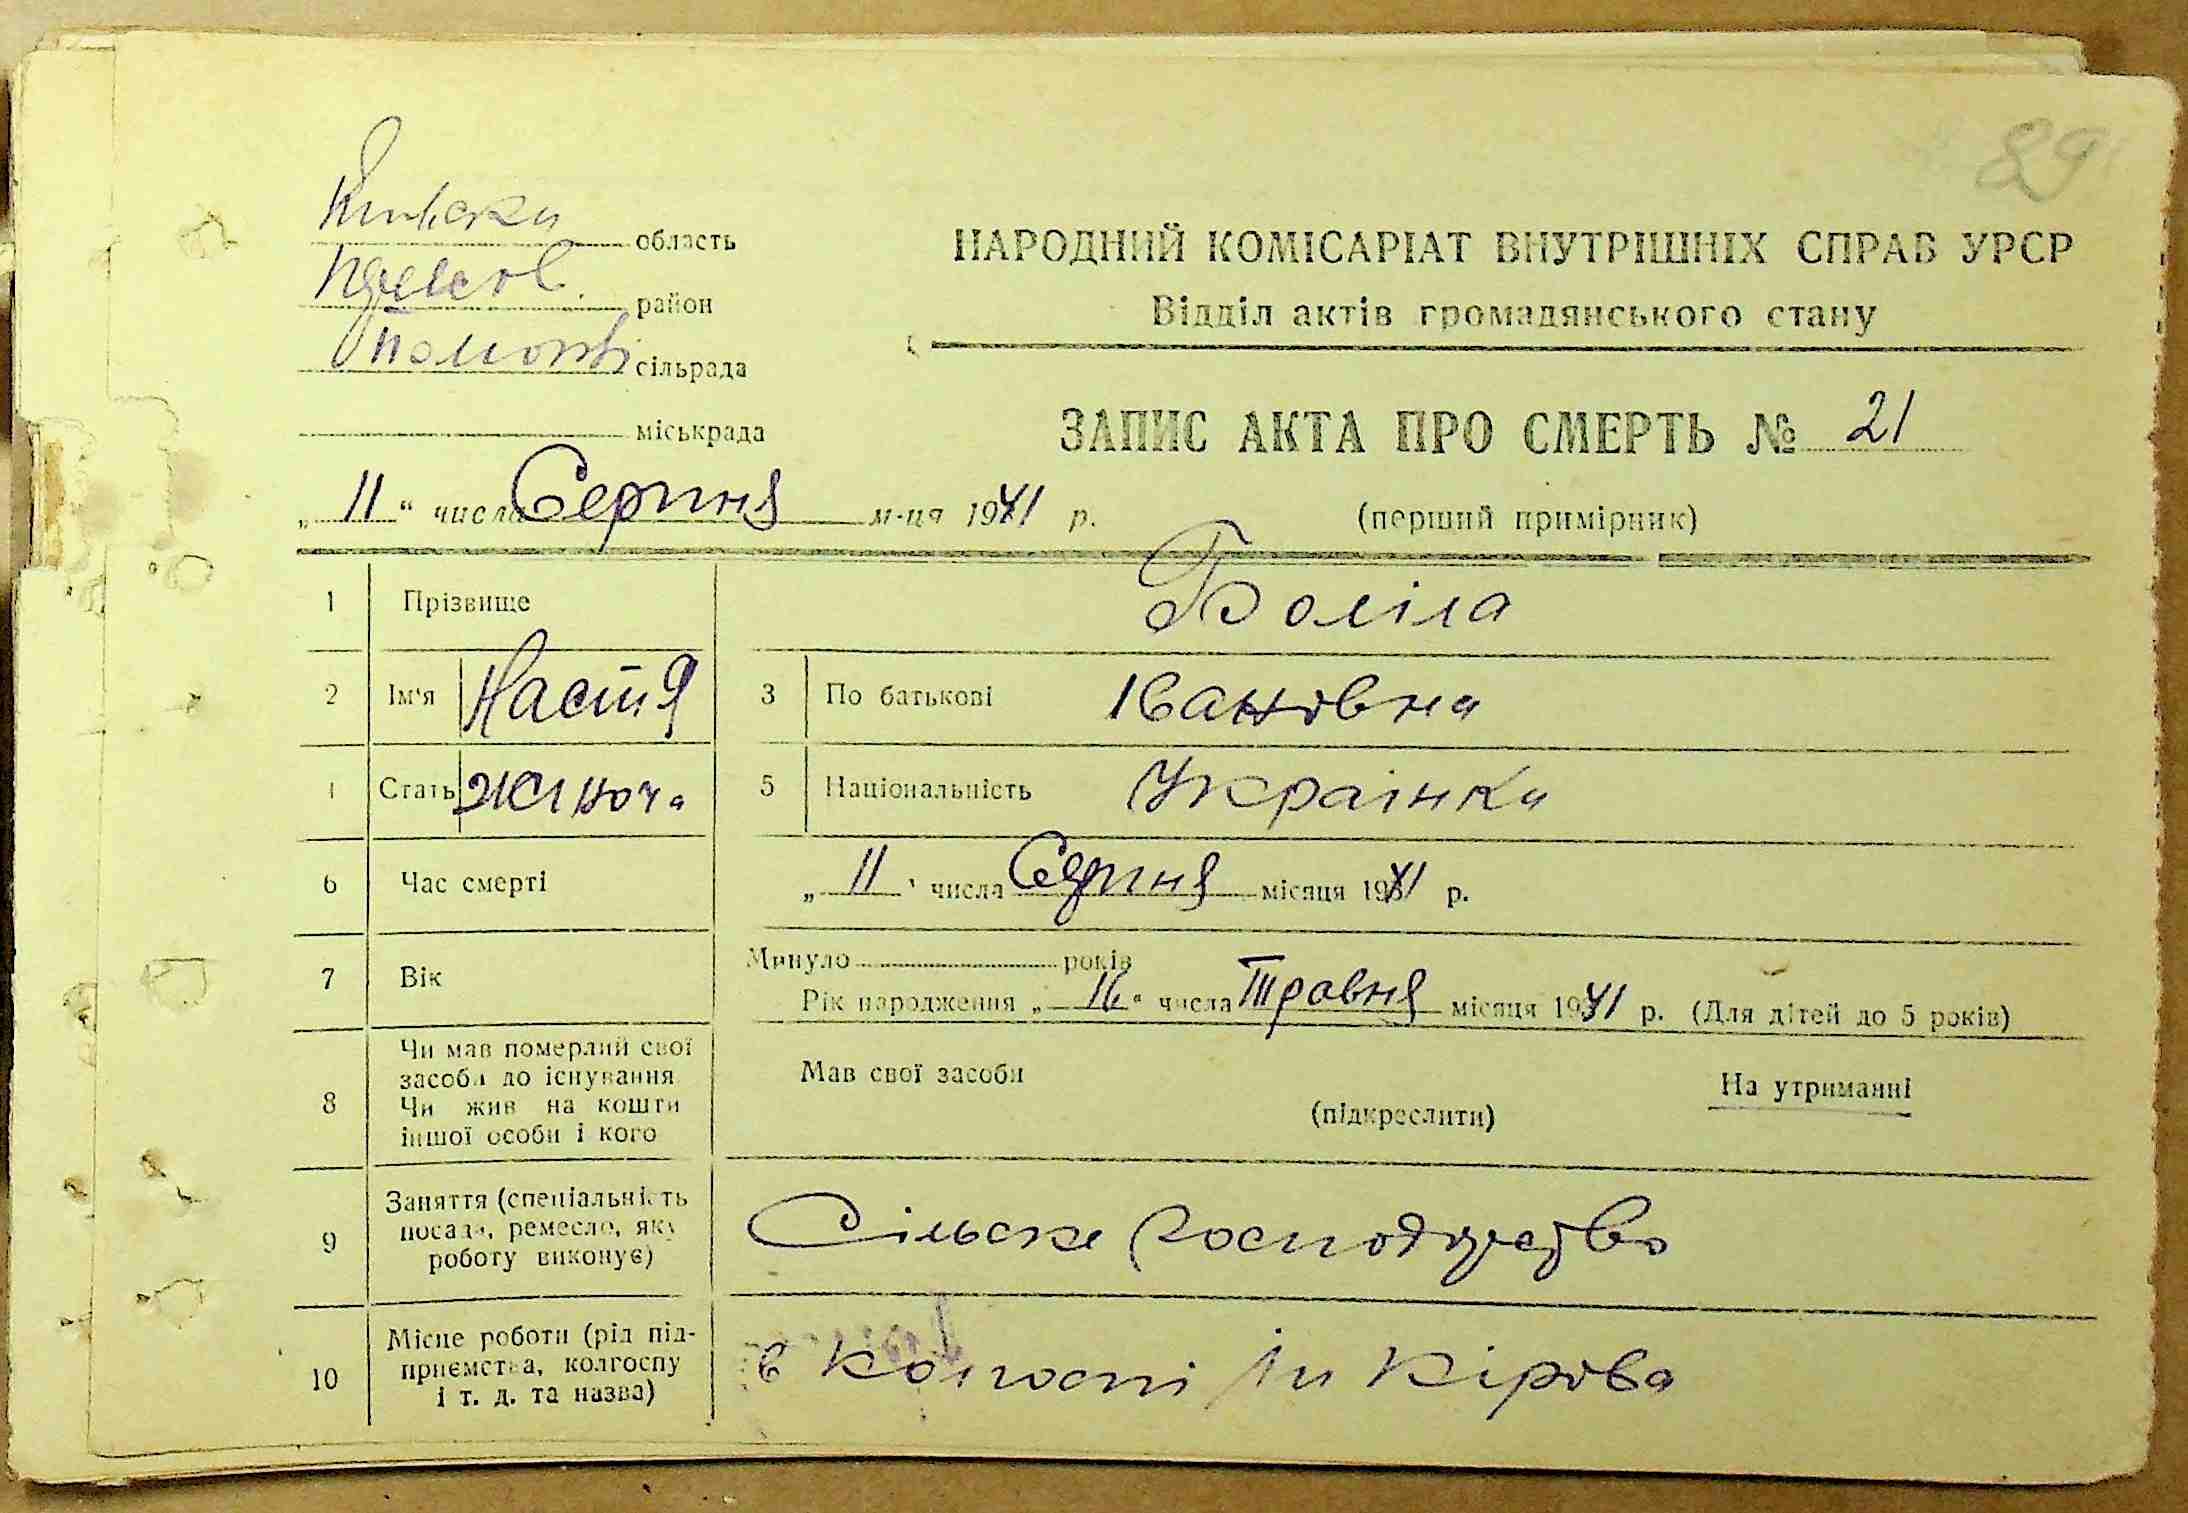 89
Київска область
район
сільрада
міськрада
НАРОДНИЙ КОМІСАРІАТ ВНУТРІШНІХ СПРАВ УРСР
Відділ актів громадянського стану
ЗАПИС АКТА ПРО СМЕРТЬ № 21
(перший примірник)
„ 11 “ числа Серпня м-ця 1941 р.
1 Прізвище Боліла
2 Ім'я Настя 3 По батькові Івановна
4 Стать жіноча 5 Національність Українка
6 Час смерті „ 11 “ числа Серпня місяця 1941 р.
7 Вік Минуло років
Рік народження „ 16 “ числа Травня місяця 1941 р. (Для дітей до 5 років)
8 Чи мав померлий свої
засоби до існування
Чи жив на кошти
іншої особи і кого
Мав свої засоби
(підкреслити)
На утриманні
9 Заняття (спеціальність
посада, ремесло, яку
роботу виконує)
Сільске господарство
10 Місце роботи (рід під-
приємства, колгоспу
і т. д. та назва)
в колгоспі ім Кірова